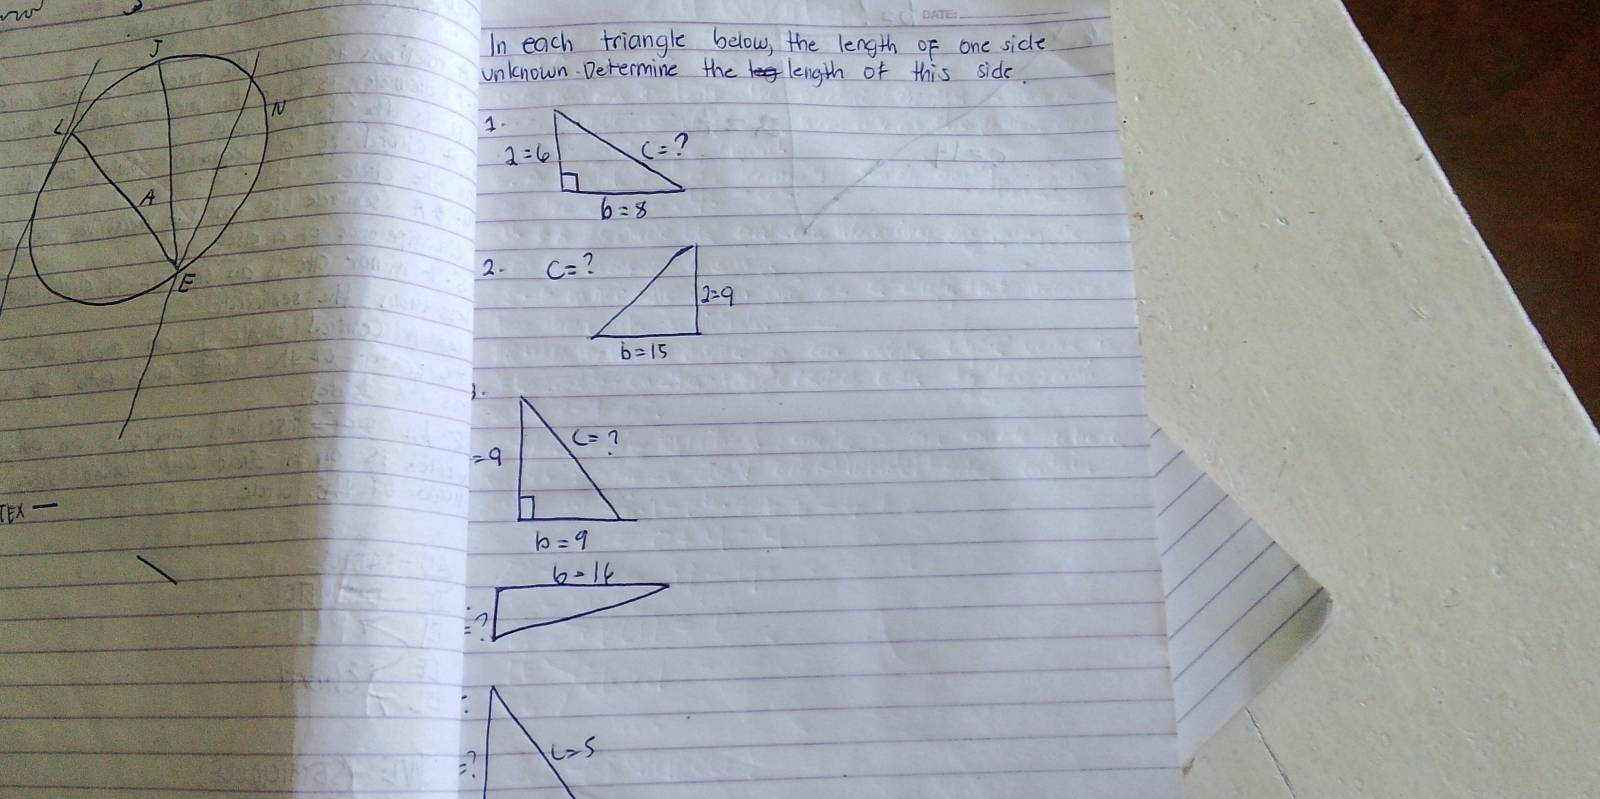 J
L
N
A
E
TEX —
DATE:
In each triangle below, the length of one side
unknown. Determine the leg length of this side.
1.
2=6
c=?
b=8
2.
c=?
2=9
b=15
3.
=9
c=?
b=9
b=16
=?
=?
c=5